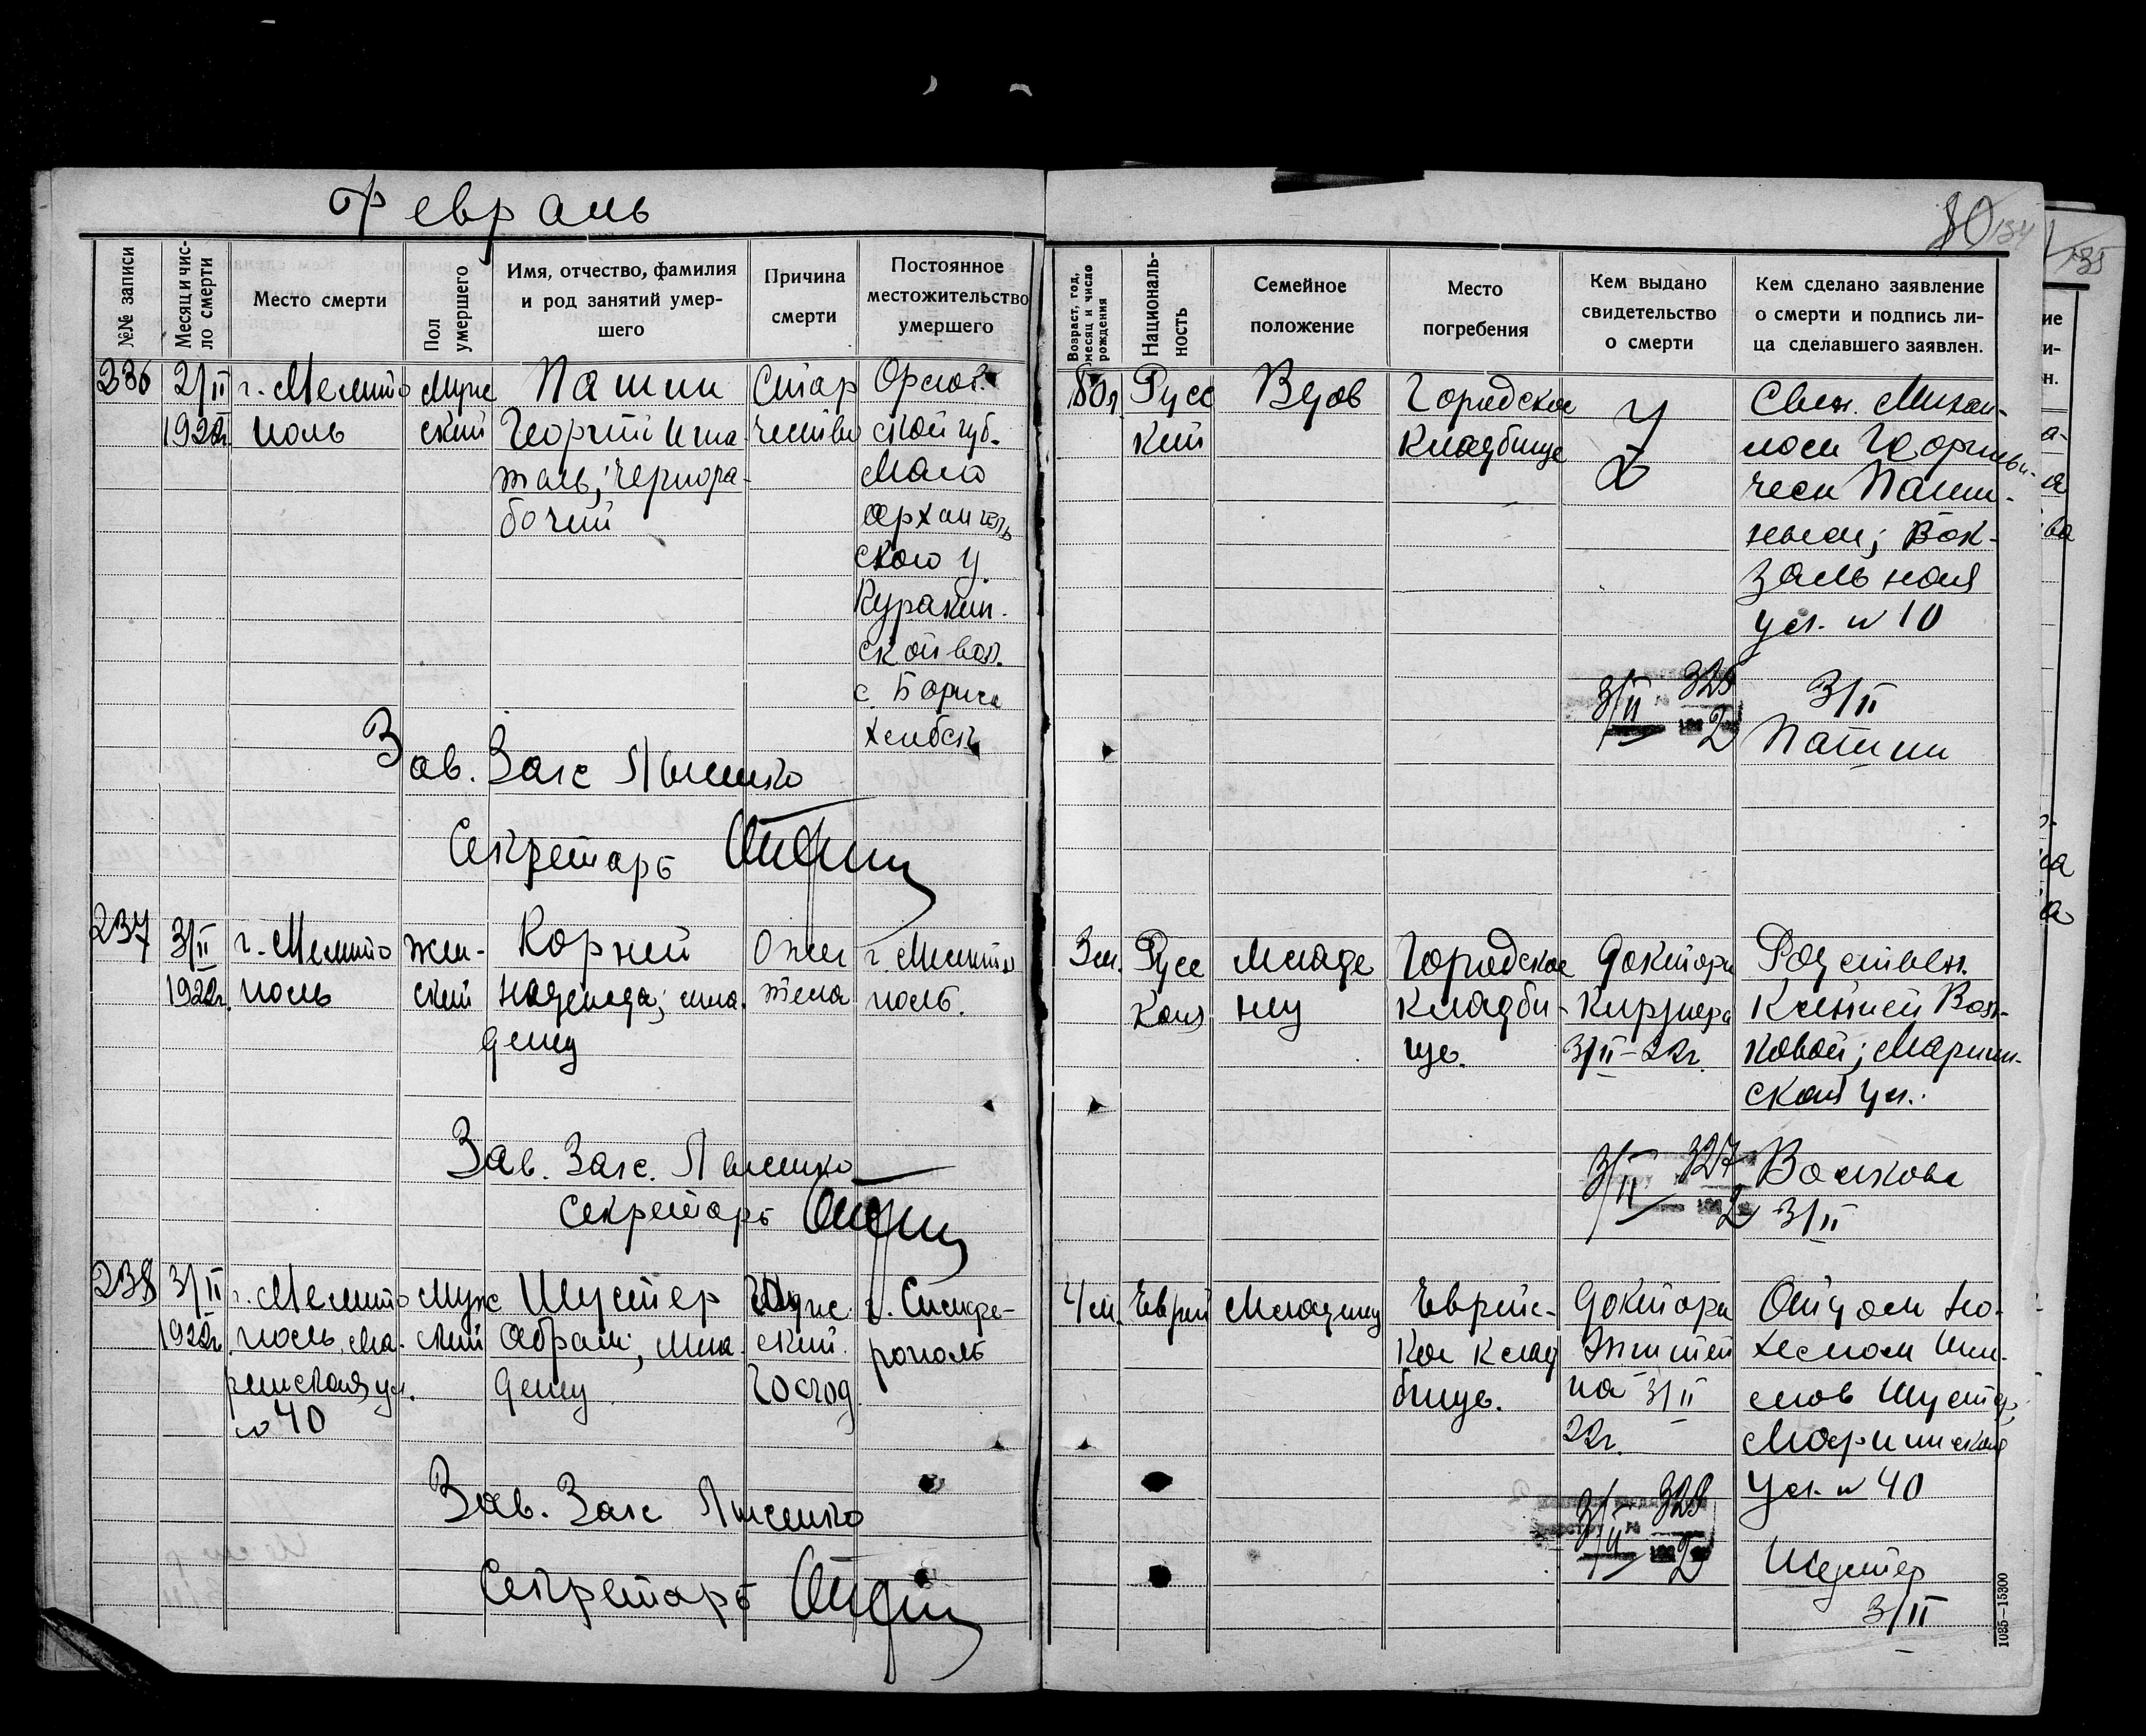 Февраль
80
134
135
№№ записи
Месяц и чис-
ло смерти
Место смерти
Пол
умершего
Имя, отчество, фамилия
и род занятий умер-
шего
Причина
смерти
Постоянное
местожительство
умершего
Возраст, год,
месяц и число
рождения
Националь-
ность
Семейное
положение
Место
погребения
Кем выдано
свидетельство
о смерти
Кем сделано заявление
о смерти и подпись ли-
ца сделавшего заявлен.
236
2/II
1922г.
г. Мелито
поль
Муж
ский
Пашин
Георгий Игна-
тьев; чернора-
бочий
Стар
чество
Орлов.
ской губ.
Мало
архангель
ского у.
Куракин-
ской вол.
80л.
Русс
кий
Вдов
Городское
кладбище
Сын. Михаи-
лом Георгиеви-
чем Паши-
ным; Вок-
зальная
ул. № 10
3/II
2
3/II
Пашин
Зав. Загс Лысенко
Секретарь
237
3/II
1922г.
г. Мелито
поль
жен-
ский
Корней
Надежда; мла-
денец
г. Мелито
поль.
3м.
Русс
кая
Младе
нец
Городское
кладби-
ще.
Доктора
3/II-22г.
Родствен.
Ксенией Вол-
ковой; Мариин-
ская ул.
3/II 327
2
Волкова
3/II
Зав. Загс. Лысенко
Секретарь
238
3/II
1922г.
г. Мелито
поль, Ма-
риинская ул.
№ 40
Муж
ский
Шустер
Абрам; мла-
денец
г. Симфе-
рополь
4м.
Еврей
Младенец
Еврейс-
кое клад
бище.
Доктора
на 3/II
22г.
Отцом Но-
хемом
Шустер,
Мариинская
ул. № 40
3/II 328
2
Шустер
3/II
Зав. Загс Лысенко
Секретарь
1035—15300